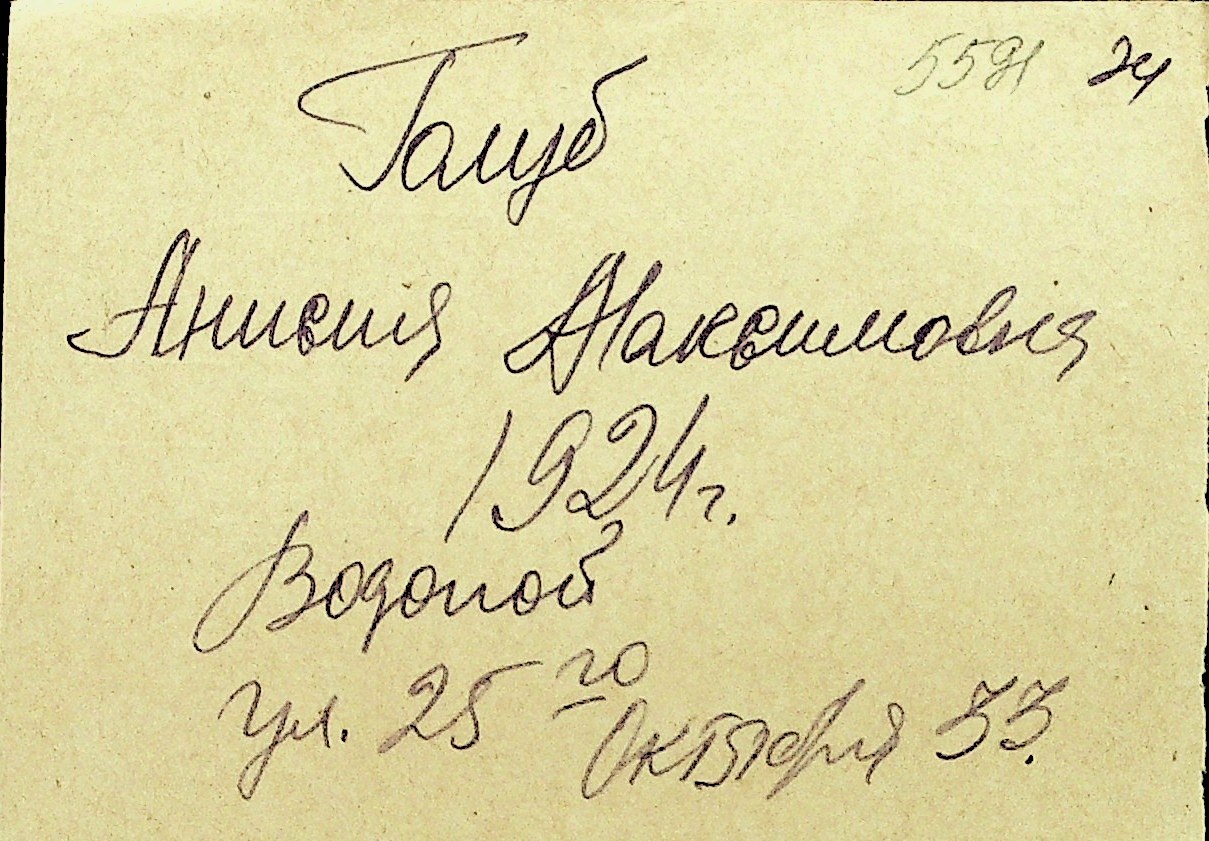 5591 24
Голуб
Анисия Максимовна
1924 г.
Водопой
ул. 25 го Октября 33.